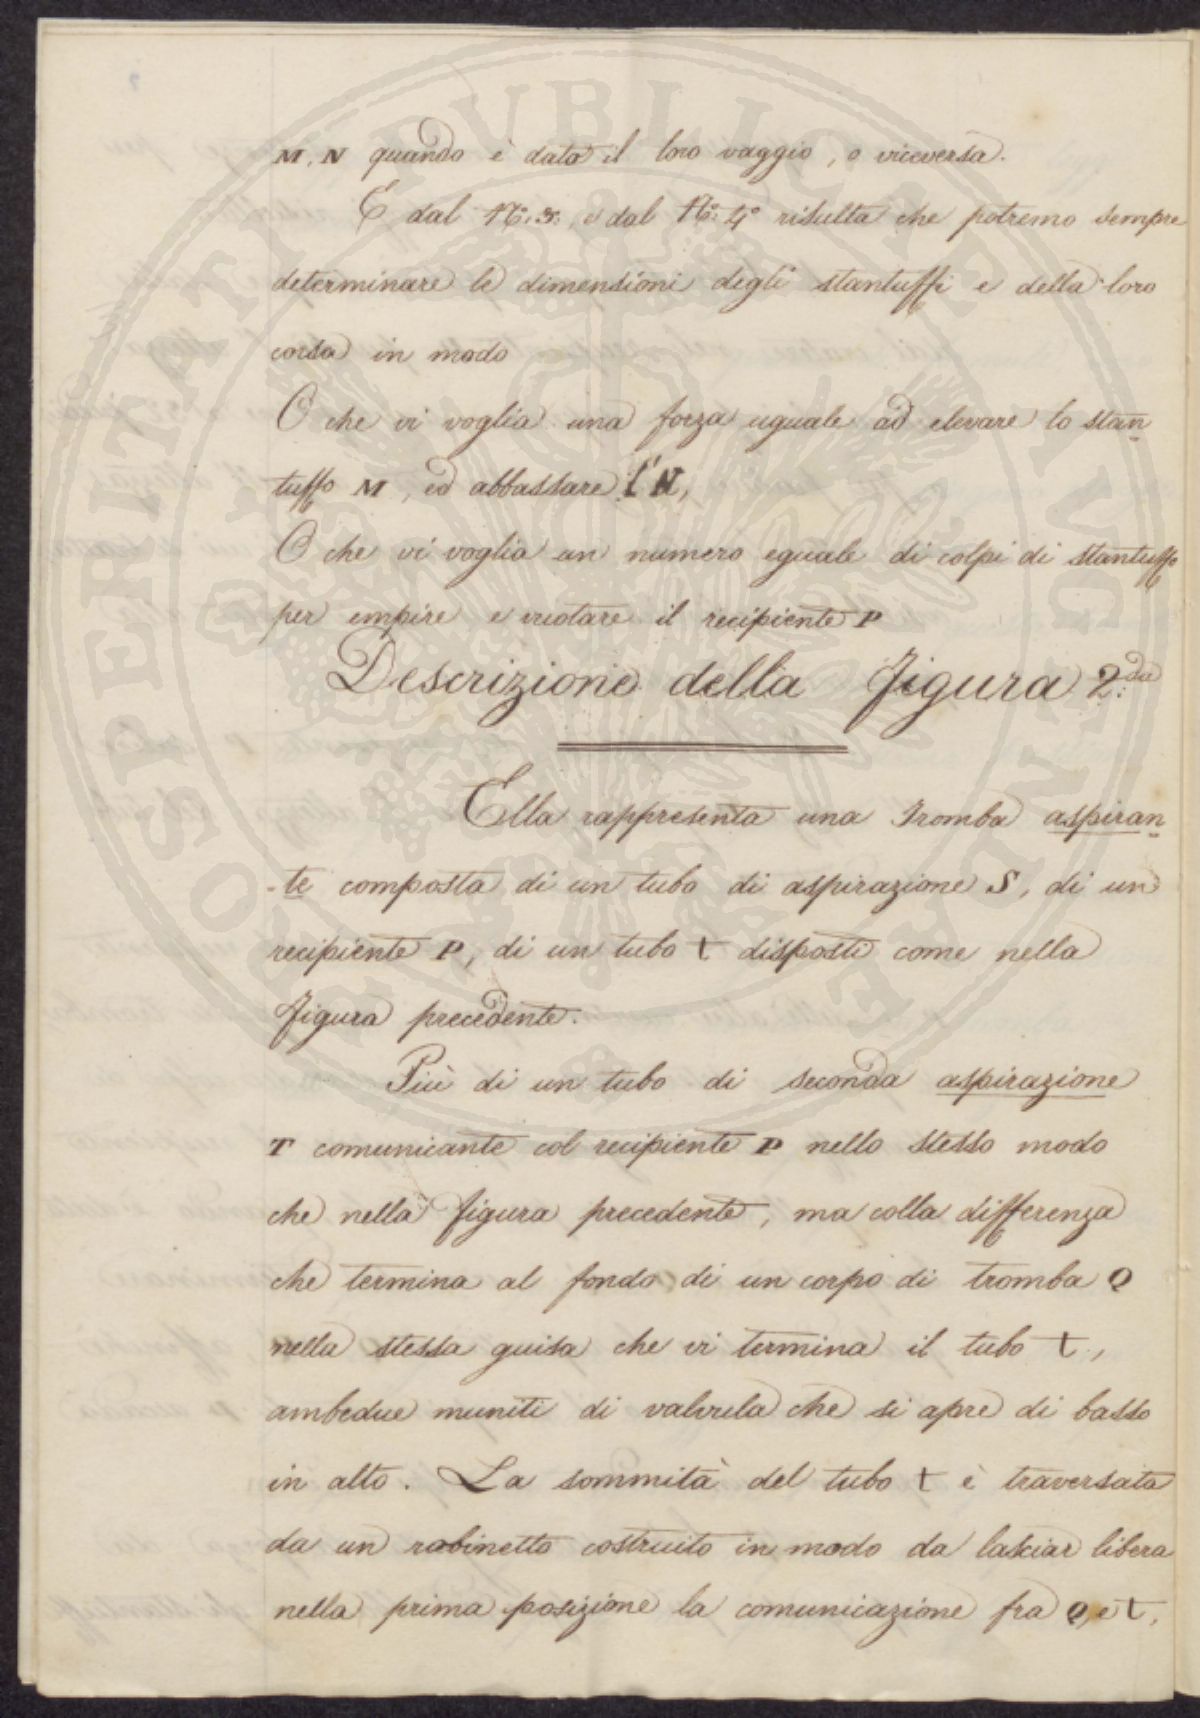 M, N quando è dato il loro raggio, o viceversa.
E dal N.° 3.° e dal N.° 4.° risulta che potremo sempre
determinare le dimensioni degli stantuffi e della loro
corsa in modo
O che vi voglia una forza uguale ad elevare lo stan
tuffo M, ed abbassare l'N,
O che vi voglia un numero eguale di colpi di stantuffo
per empire e vuotare il recipiente P
Descrizione della Figura 2.da
Ella rappresenta una Tromba aspiran
-te composta di un tubo di aspirazione S, di un
recipiente P, di un tubo t disposti come nella
figura precedente.
Più di un tubo di seconda aspirazione
T comunicante col recipiente P nello stesso modo
che nella figura precedente, ma colla differenza
che termina al fondo di un corpo di tromba Q
nella stessa guisa che vi termina il tubo t,
ambedue muniti di valvula che si apre di basso
in alto. La sommità del tubo t è traversata
da un robinetto costruito in modo da lasciar libera
nella prima posizione la comunicazione fra Q, e t,
PROSPERITATI PUBLICAE AUGENDAE